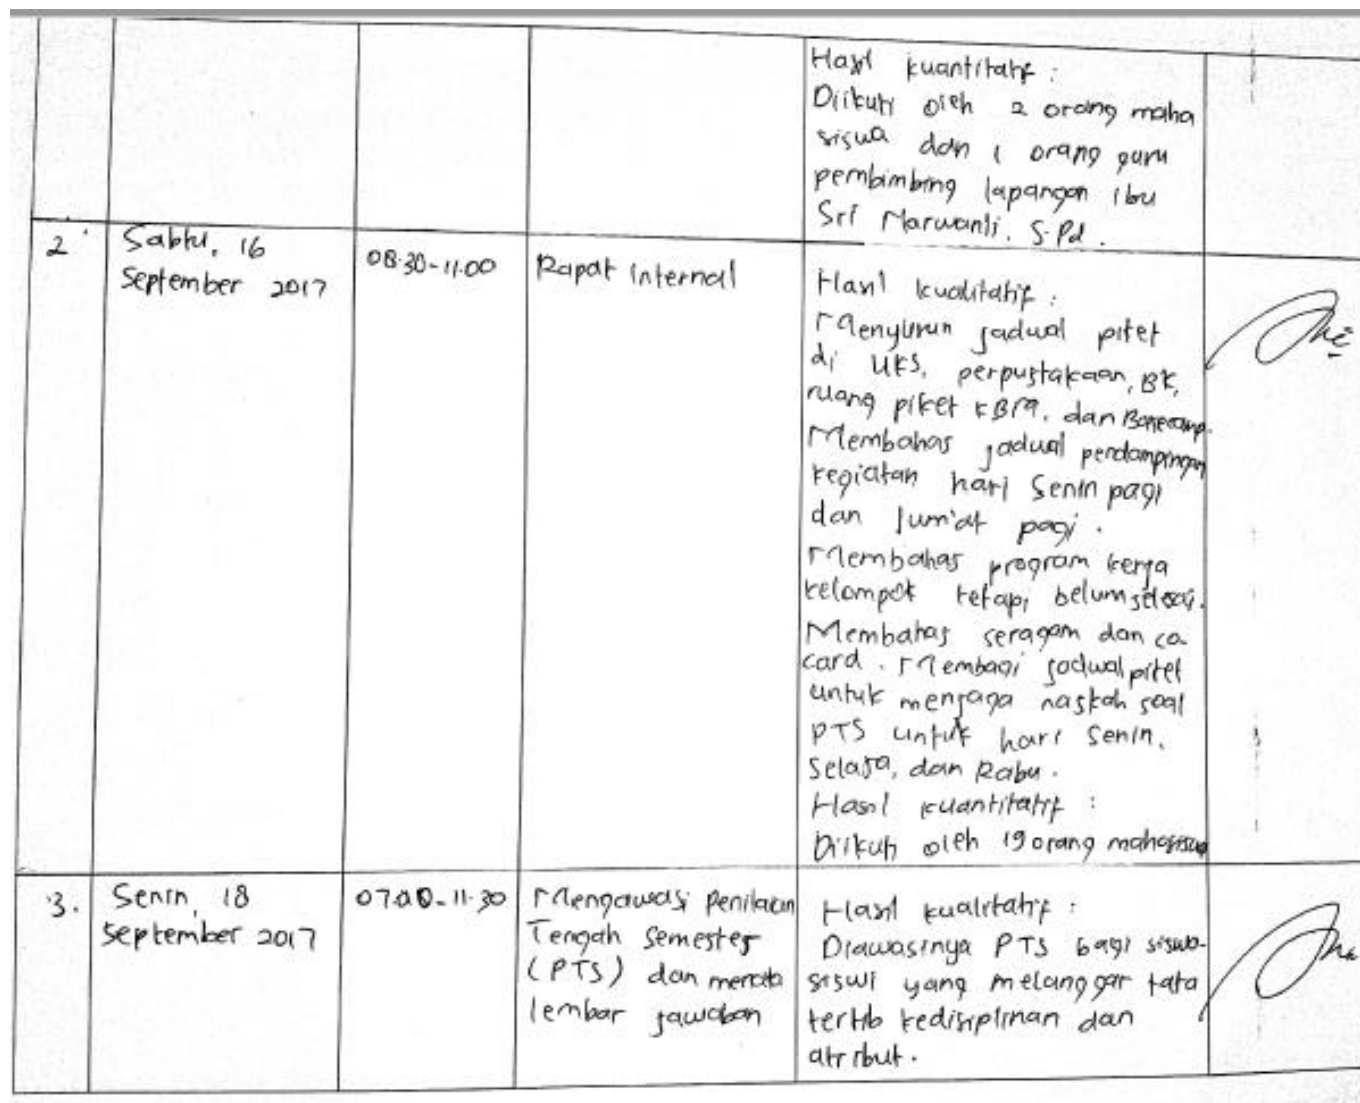 Hasil kuantitatif :
Diikuti oleh 2 orang maha
siswa dan 1 orang guru
pembimbing lapangan ibu
Sri Marwanti. S.Pd.
2. Sabtu, 16
September 2017
08.30-11.00
Rapat Internal
Hasil kualitatif :
Menyusun jadwal piket
di UKS, perpustakaan, BK,
ruang piket KBM, dan Basecamp.
Membahas jadwal pendampingan
kegiatan hari Senin pagi
dan Jum'at pagi.
Membahas program kerja
kelompok tetapi belum selesai.
Membahas seragam dan co
card. Membagi jadwal piket
untuk menjaga naskah soal
PTS untuk hari Senin,
Selasa, dan Rabu.
Hasil kuantitatif :
Diikuti oleh 19 orang mahasiswa
3. Senin, 18
September 2017
07.00-11.30
Mengawasi Penilaian
Tengah Semester
(PTS) dan
lembar jawaban
Hasil kualitatif :
Diawasinya PTS bagi siswa-
siswi yang melanggar tata
tertib kedisiplinan dan
atribut.